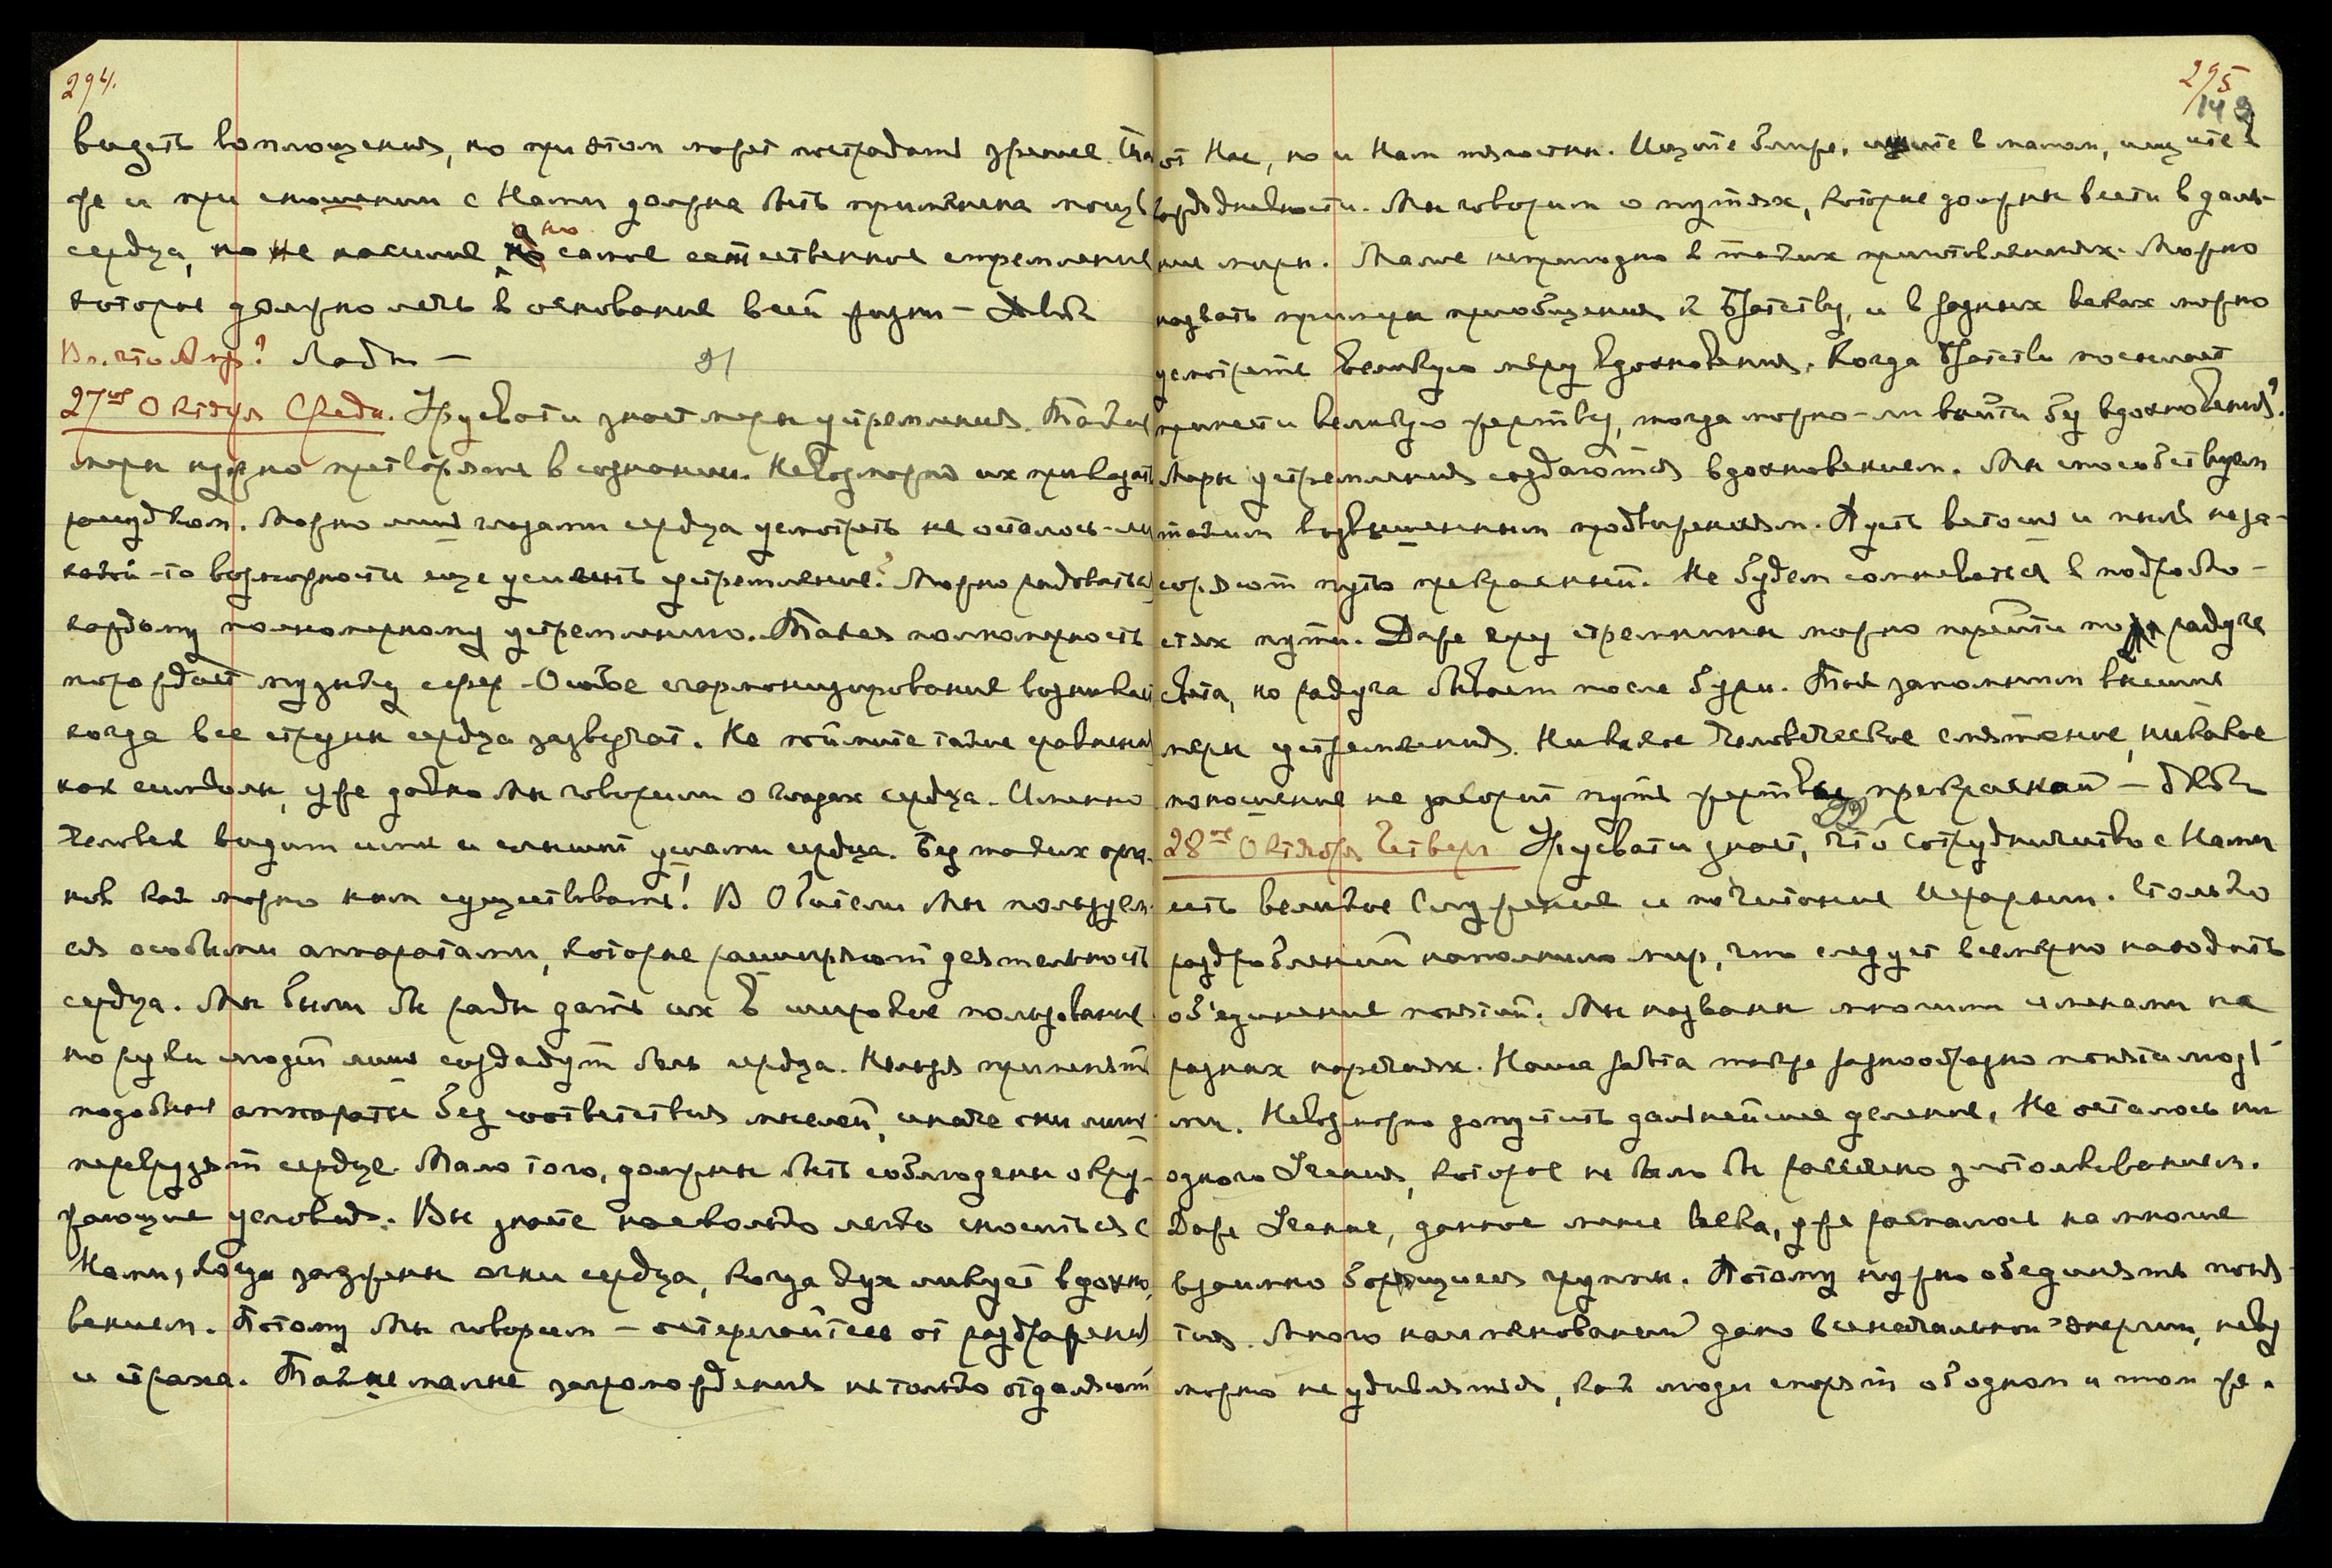 294.
видеть воплощения, но при этом может пострадать зрение. Так
же и при сношении с Нами должна быть применена мощь
сердца, но не насилие а но самое естественное стремление
которое должно лечь в основание всей жизни —
Вл. что Люб —
91
27ое Октября Среда. Урусвати знает меры устремления. Такие
меры нужно претворять в сознании. Невозможно их приказать
рассудком. Можно лишь глазами сердца усмотреть не осталось-ли
какой-то возможности еще усилить устремление? Можно радоваться
каждому полномерному устремлению. Такая полномерность
порождает музыку сфер. Особое сгармонизирование возникает
когда все струны сердца зазвучат. Не поймите такие сравнения
как символы, уже давно Мы говорили о глазах сердца. Именно
человек видит ими и слышит ушами сердца. Без таких орга-
нов как можно нам существовать! В Обители Мы пользуем-
ся особыми аппаратами, которые расширяют деятельность
сердца. Мы были бы рады дать их в широкое пользование
но руки людей лишь создадут боль сердца. Нельзя применять
подобные аппараты без соответствия мыслей, иначе они лишь
перегрузят сердце. Мало того, должны быть соблюдены окру-
жающие условия. Вы знаете насколько легко сноситься с
Нами, когда зажжены огни сердца, когда дух ликует вдохно-
вением. Потому Мы говорим — остерегайтесь от раздражения
и страха. Такие малые загромождения не только отдаляют
295
149
от Нас, но и Нам тягостны. Ищите ближе, ищите в малом, ищите в
каждодневности. Мы говорим о путях, которые должны вести в даль-
ние миры. Малое непригодно в таких приготовлениях. Можно
назвать примеры приобщения к Братству, и в разных веках можно
усмотреть великую меру вдохновения. Когда Братство посылает
принести великую жертву, тогда можно-ли выйти без вдохновения?
Меры устремления создаются вдохновением. Мы способствуем
таким возвышенным продвижениям. Пусть ветошь и пыль не за-
соряют путь прекрасный. Не будем сомневаться в подробно-
стях пути. Даже над стремнины можно перейти по радуге
света, но радуга бывает после бури. Так запомним высшие
меры устремления. Никакое человеческое смятение, никакое
поношение не засорит путь жертвы прекрасной —
92
28ое Октября Четверг Урусвати знает, что сотрудничество с Нами
есть великое Служение и почитание Иерархии. Столько
раздроблений наполнило мир, что следует всемерно находить
об'единение понятий. Мы названы многими именами на
разных наречиях. Наша работа также разнообразно понята людь-
ми. Невозможно допустить дальнейшее деление. Не осталось ни
одного Учения, которое не было бы рассеяно злотолкованием.
Даже Учение, данное менее века, уже распалось на многие
взаимно борющиеся группы. Потому нужно объединять поня-
тия. Много наименований дано всеначальной энергии, невоз
можно не удивляться, как люди спорят об одном и том же.